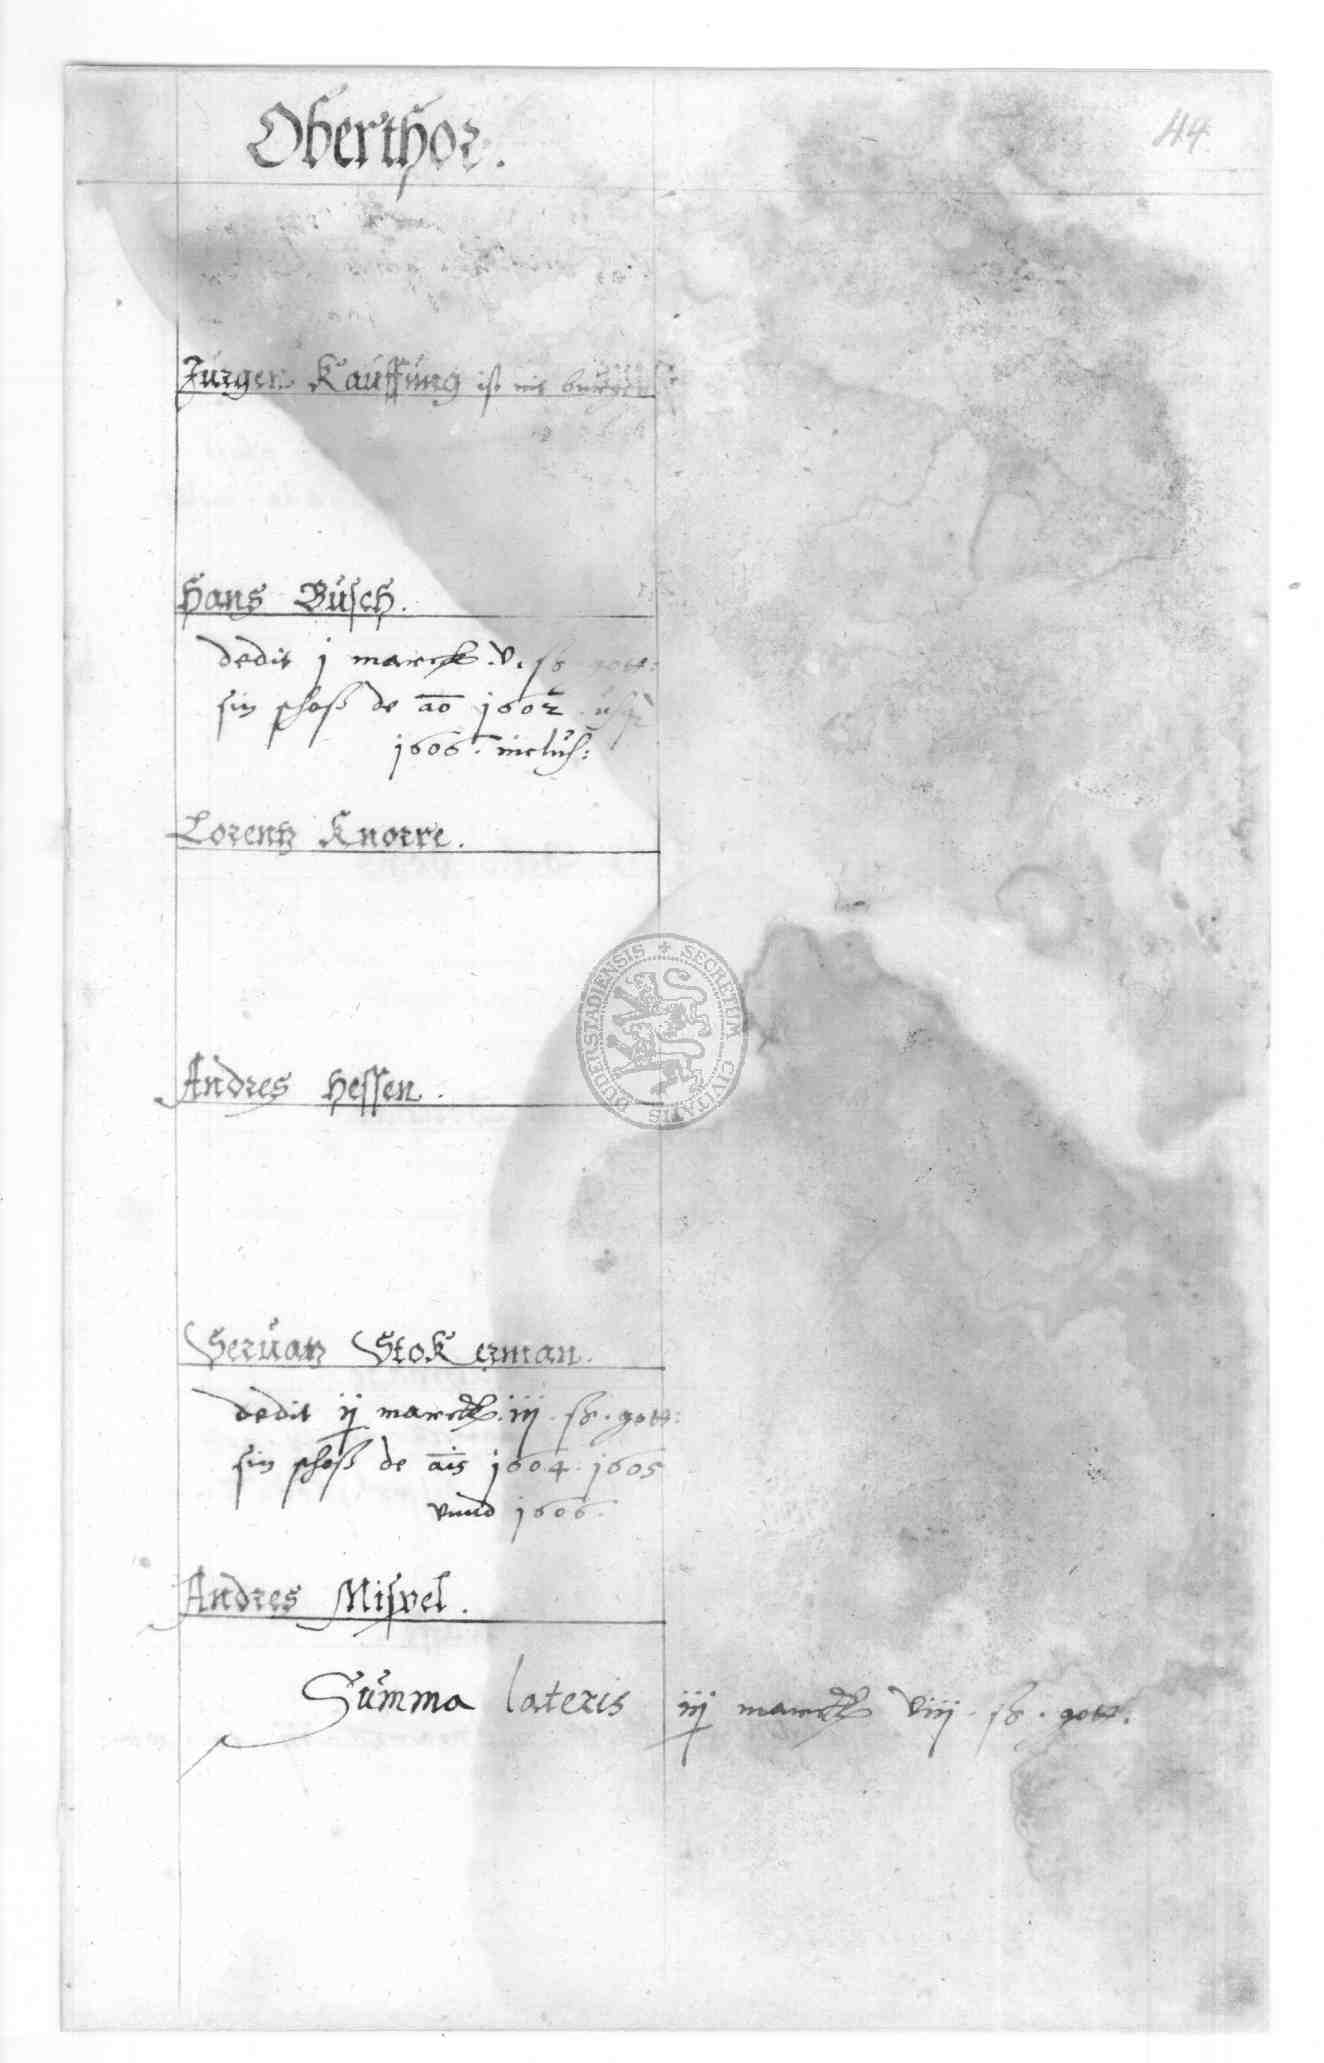 Oberthor.
44
Jürgen Kauffüng ist
Hans Büsch.
dedit j marck .v. ß gott:
sin schoß de ao 1602
1606. inclus:
Lorentz Knorre.
SECRETUM CIVITATIS DUDERSTADIENSIS
Andres Hessen.
Seruatz Stokerman.
dedit ij marck. iij. ß. gott:
sin schoß de ais 1604. 1605
vnnd 1606.
Andres Misvel.
Summa lateris iij marck viij. ß. gott.